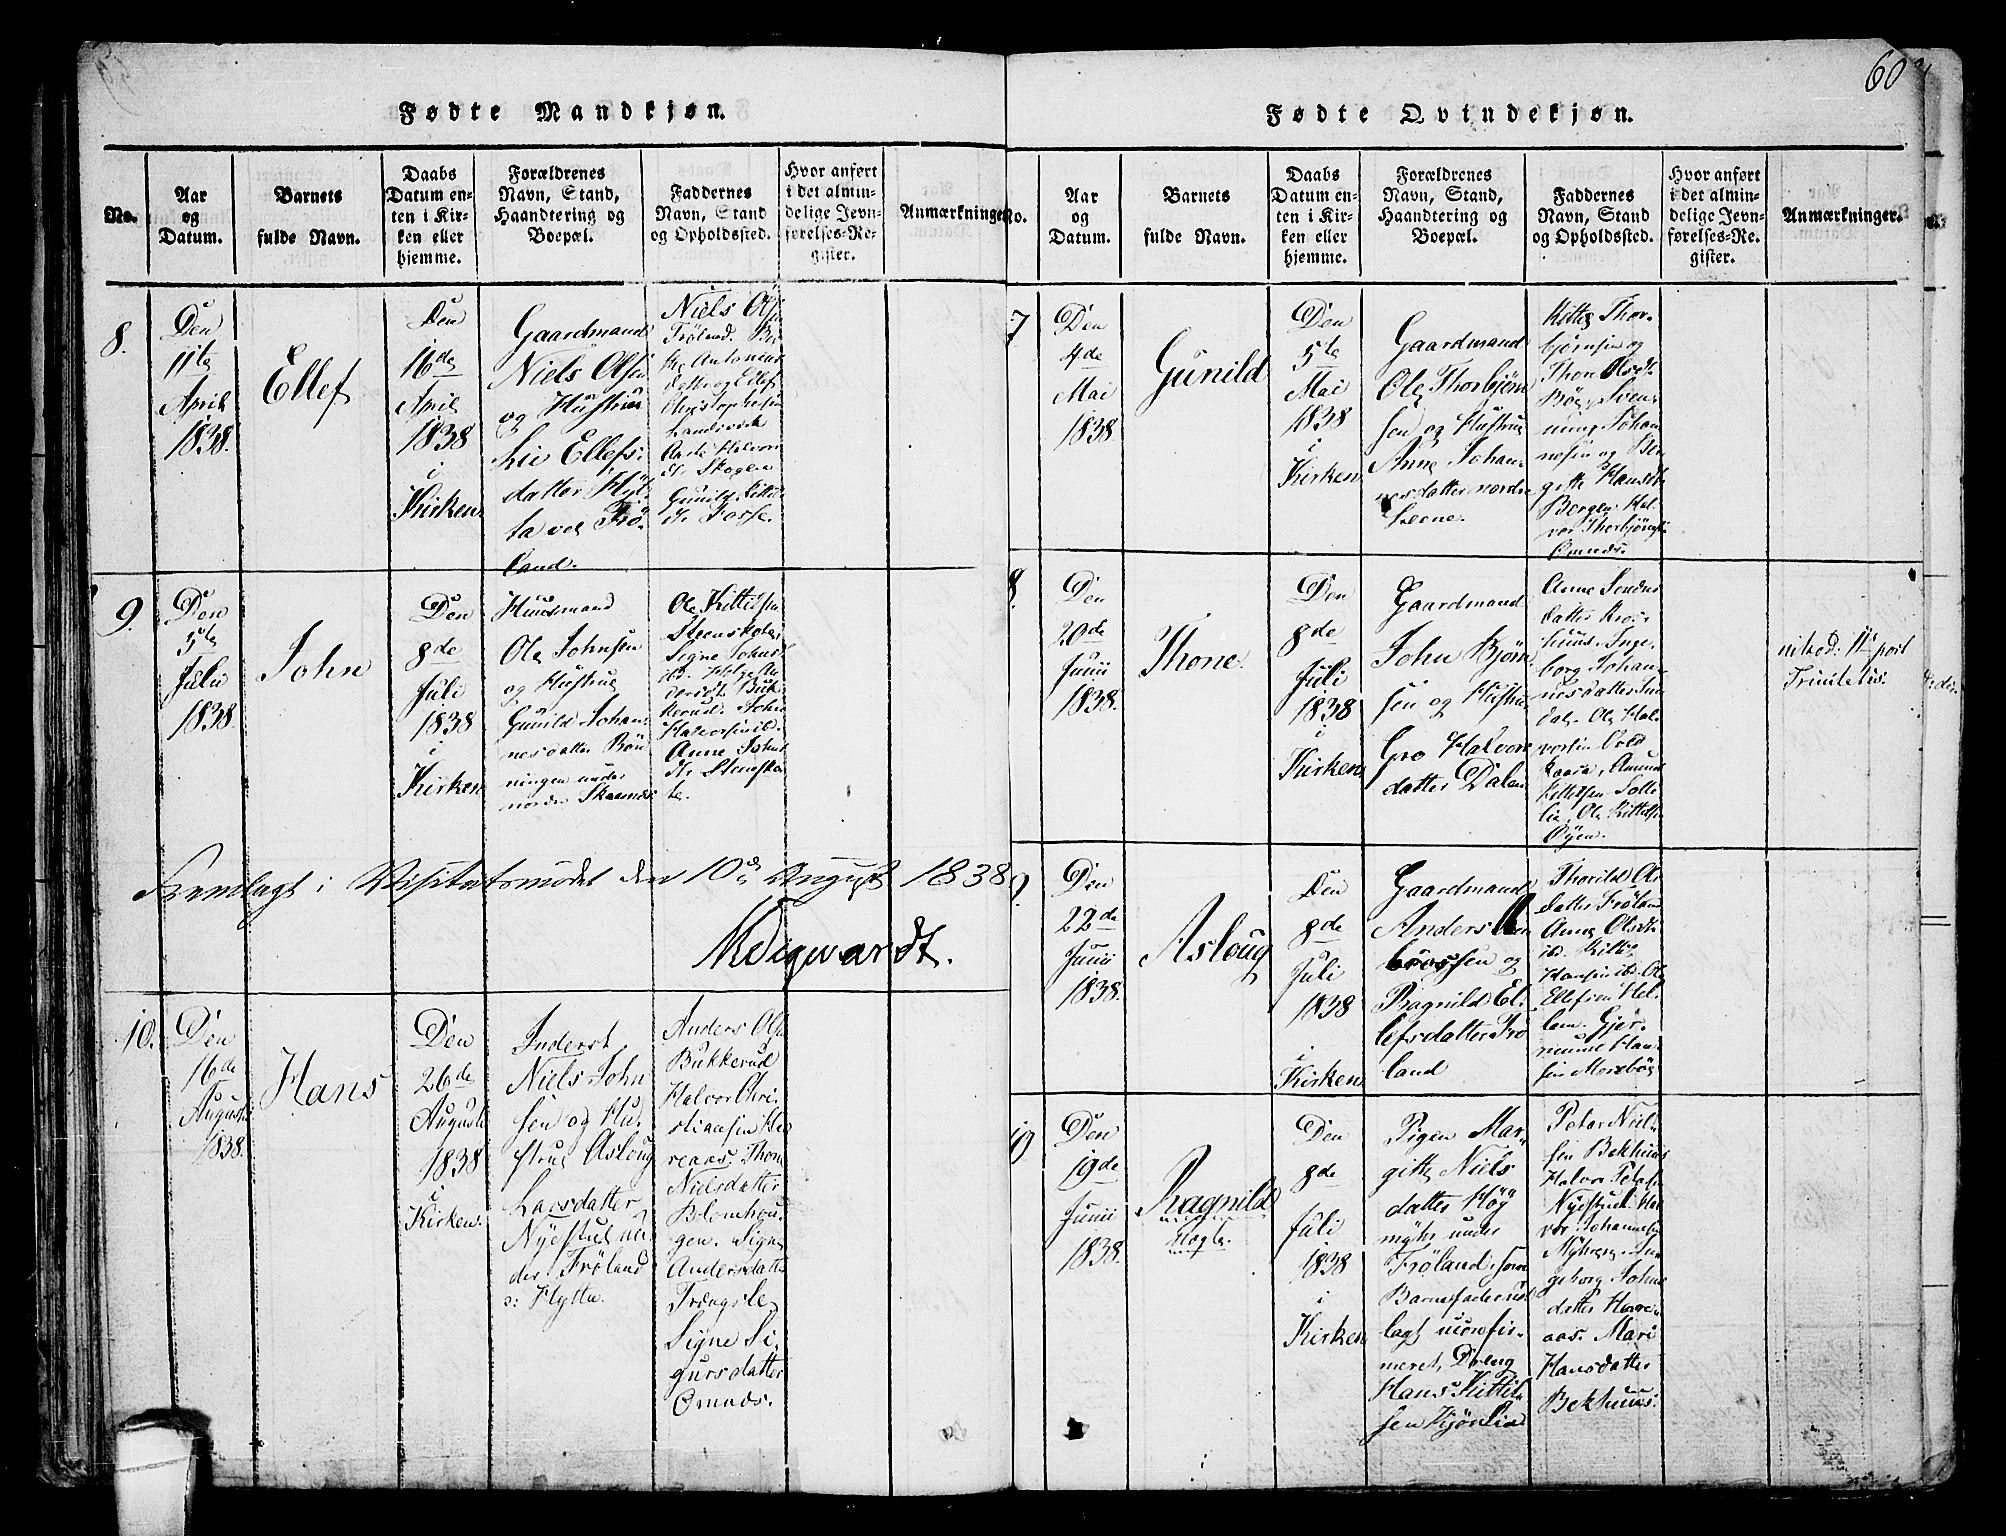 60
Fødte Mandkjøn.
No.
Aar
og
Datum.
Barnets
fulde Navn.
Daabs
Datum en-
ten i Kir-
ken eller
hjemme.
Forældrenes
Navn, Stand,
Haandtering og
Boepæl.
Faddernes
Navn, Stand
og Opholdssted.
Hvor anført
i det almin-
delige Jevn-
førelses-Re-
gister.
Anmærkninger
8.
Den
11te
April
1838.
Ellef
Den
16de
April
1838
i
Kirken
Gaardmand
Niels Olsen
og Hustrue
Liv Ellefs-
datter Hyt-
ta ved Frö-
land.
Niels Olsen
Fröland.
Antonius
datter og Ellef
Christophersen
Landsverk
Halvors
dr. Skogen
Gunild Kittils
dr. Fosse.
9.
Den
5te
Julii
1838.
John
Den
8de
Juli
1838
i
Kirken
Huusmand
Ole Johnsen
og Hustrue
Gunild Johan-
nesdatter Rön-
ningen under
nordre
Ole Kittilsen
Steenskote,
Signe Johns
ib. Helge An
dersdr. Buk-
kerud. John
Halvorsen ib.
Anne Johns
dr. Stensko
te.
Fremlagt i Visitatsmødet den 10de August 1838
10.
Den
16de
August
1838.
Hans
Den
26de
Augusti
1838
i
Kirken.
Inderst
Niels John
sen og Hu-
strue Asloug
Larsdatter
Nyestul un-
der Fröland
s: Hytta.
Anders Olsen
Bukkerud
Halvor Chri-
stiansen
Thone
Nielsdatter
Blomhou-
gen. Signe
Andersdatter
Trengsle
Signe Si-
gursdatter
Omnds.
Fødte Qvindekjøn.
No.
Aar
og
Datum.
Barnets
fulde Navn.
Daabs
Datum en-
ten i Kir-
ken eller
hjemme.
Forældrenes
Navn, Stand,
Haandtering og
Boepæl.
Faddernes
Navn, Stand
og Opholdssted.
Hvor anført
i det almin-
delige Jevn-
førelses-Re-
gister.
Anmærkninger.
7
Den
4de
Mai
1838
Gunild
Den
5te
Mai
1838
i
Kirken
Gaardmand
Ole Thorbjörn
sen og Hustrue
Anne Johan-
nesdatter nordre
Kittil Thor-
björnsen og
Thone Olsdt.
Böe, Sven-
nung Johan-
nesen og Ber-
gitte Hansdt.
Bergen Hal-
vor Thorbjörns
Omnds.
8.
Den
20de
Junii
1838.
Thone.
Den
8de
Juli
1838
i
Kirken
Gaardmand
John Björn
sen og Hustrue
Gro Halvors
datter Dalen
Anne Sonders
datter Kros-
huus. Inge-
borg Johan-
nesdatter Sun
dal. Ole Hal-
vorsen Bold
kaasa, Amund
Kittilsen Solli
lie, Ole Kittils
Öyen.
post
Trinitatis.
9.
Den
22de
Junii
1838.
Asloug
Den
8de
Juli
1838
i
Kirken
Gaardmand
Anders Am
brossen og
Ragnild El-
lefsdatter Frö
land
Thorild Ols
datter Fröland
Anne Olsdt.
ib. Kittil
Hansen ib. Ole
Ellefsen Hel-
lem. Gjer-
mund Han-
sen
10
Den
19de
Junii
1838.
Ragnild
Uægte.
Den
8de
Juli
1838
i
Kirken
Pigen Mar-
gitte Niels
datter Höy
myhr under
Fröland, som
Barnefader ud
lagt uconfir-
meret Dreng
Hans Kittil
sen
Peter Niel-
sen Bekhuus
Halvor Peters
Nyestul. Hal
vor Johannesen
Myhren. In-
geborg Johns
datter
Mari
Hansdatter
Bekhuus.